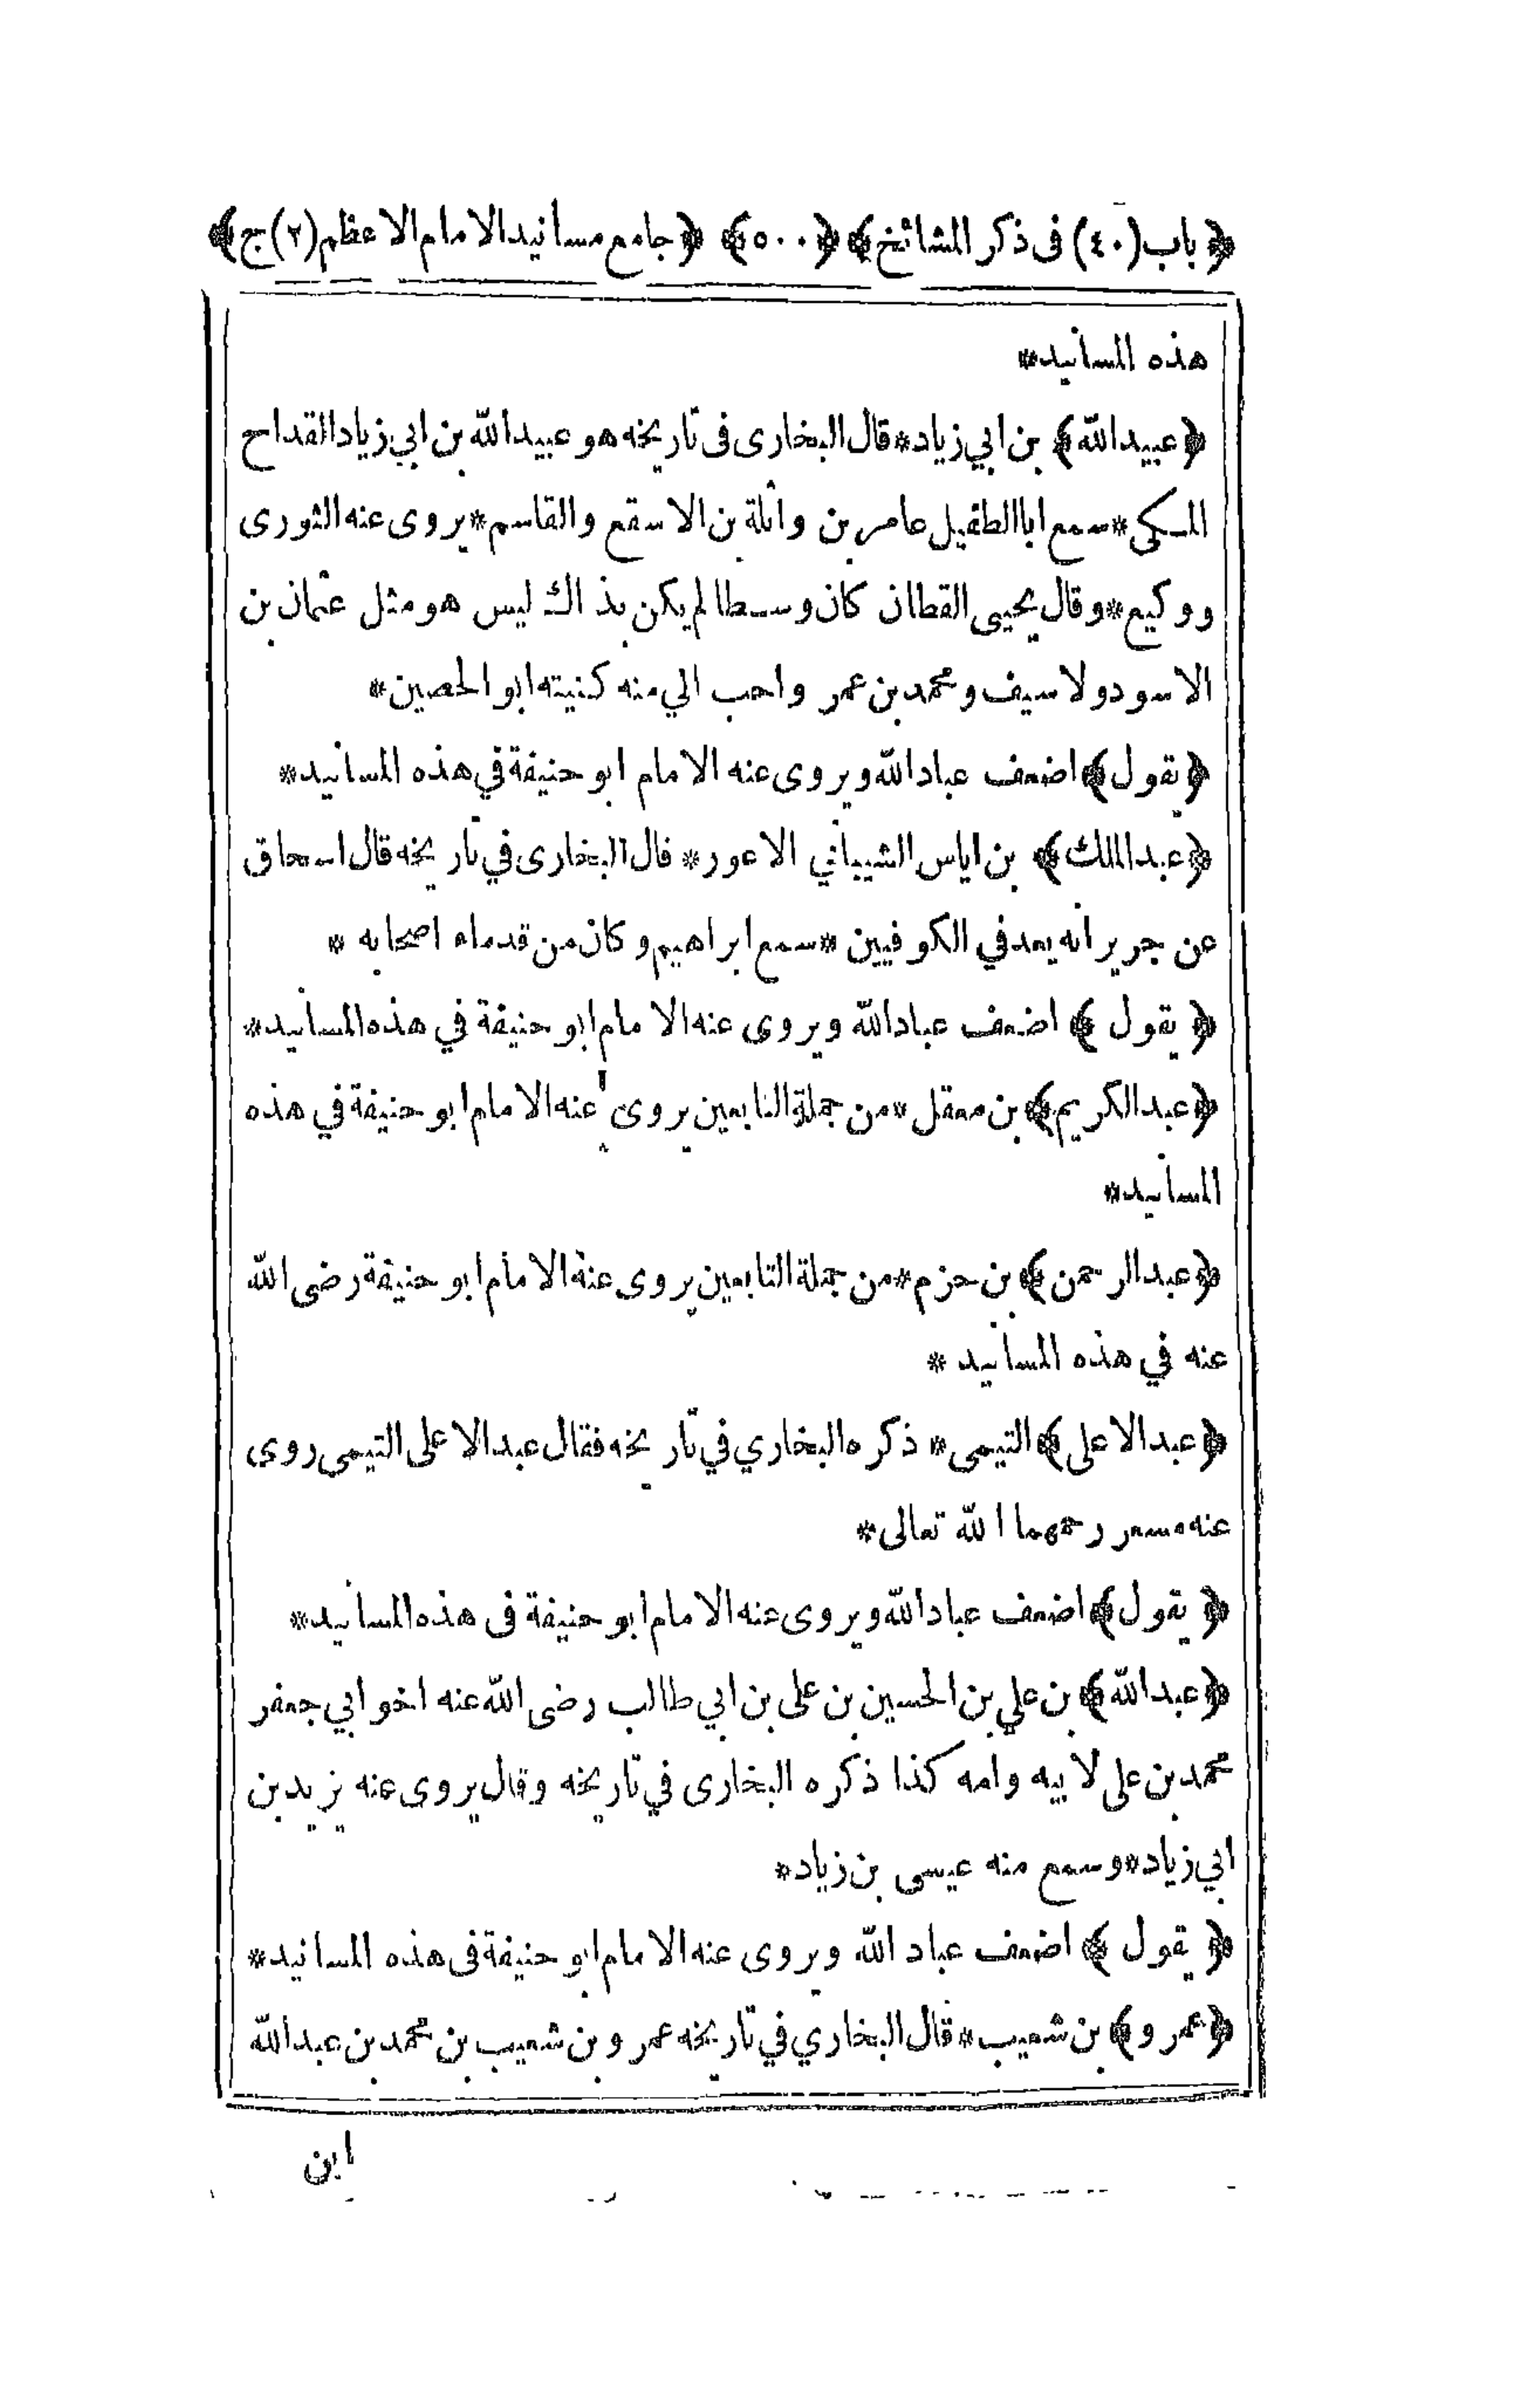 ﴿باب (٤٠) فى ذكر المشائخ﴾ ﴿٥٠٠﴾ ﴿جامع مسانيد الامام الاعظم (٢) ج﴾
هذه المسانيد*
﴿عبيد الله﴾ بن ابي زياد* قال البخارى فى تاريخه هو عبيد الله بن ابي زياد القداح
المكى* سمع ابا الطفيل عامر بن واثلة بن الاسقع والقاسم* يروى عنه الثورى
ووكيع* وقال يحيى القطان كان وسطا لم يكن بذاك ليس هو مثل عثمان بن
الاسود ولا سيف ومحمد بن عمر واحب الي منه كنيته ابو الحصين*
﴿يقول﴾ اضعف عباد الله ويروى عنه الامام ابو حنيفة في هذه المسانيد*
﴿عبد الملك﴾ بن اياس الشيباني الاعور* قال البخارى في تاريخه قال اسحاق
عن جرير انه يعد في الكوفيين* سمع ابراهيم وكان من قدماء اصحابه *
﴿يقول﴾ اضعف عباد الله ويروى عنه الامام ابو حنيفة في هذه المسانيد*
﴿عبد الكريم﴾ بن معقل* من جملة التابعين يروى عنه الامام ابو حنيفة في هذه
المسانيد*
﴿عبد الرحمن﴾ بن حزم* من جملة التابعين يروى عنه الامام ابو حنيفة رضى الله
عنه في هذه المسانيد *
﴿عبد الاعلى﴾ التيمى* ذكره البخاري في تاريخه فقال عبد الاعلى التيمى روى
عنه مسعر رحمهما الله تعالى*
﴿يقول﴾ اضعف عباد الله ويروى عنه الامام ابو حنيفة فى هذه المسانيد*
﴿عبد الله﴾ بن علي بن الحسين بن على بن ابي طالب رضى الله عنه اخو ابي جعفر
محمد بن على لابيه وامه كذا ذكره البخارى في تاريخه وقال يروى عنه يزيد بن
ابي زياد* وسمع منه عيسى بن زياد*
﴿يقول﴾ اضعف عباد الله ويروى عنه الامام ابو حنيفة فى هذه المسانيد*
﴿عمرو﴾ بن شعيب* قال البخاري في تاريخه عمرو بن شعيب بن محمد بن عبد الله
ابن